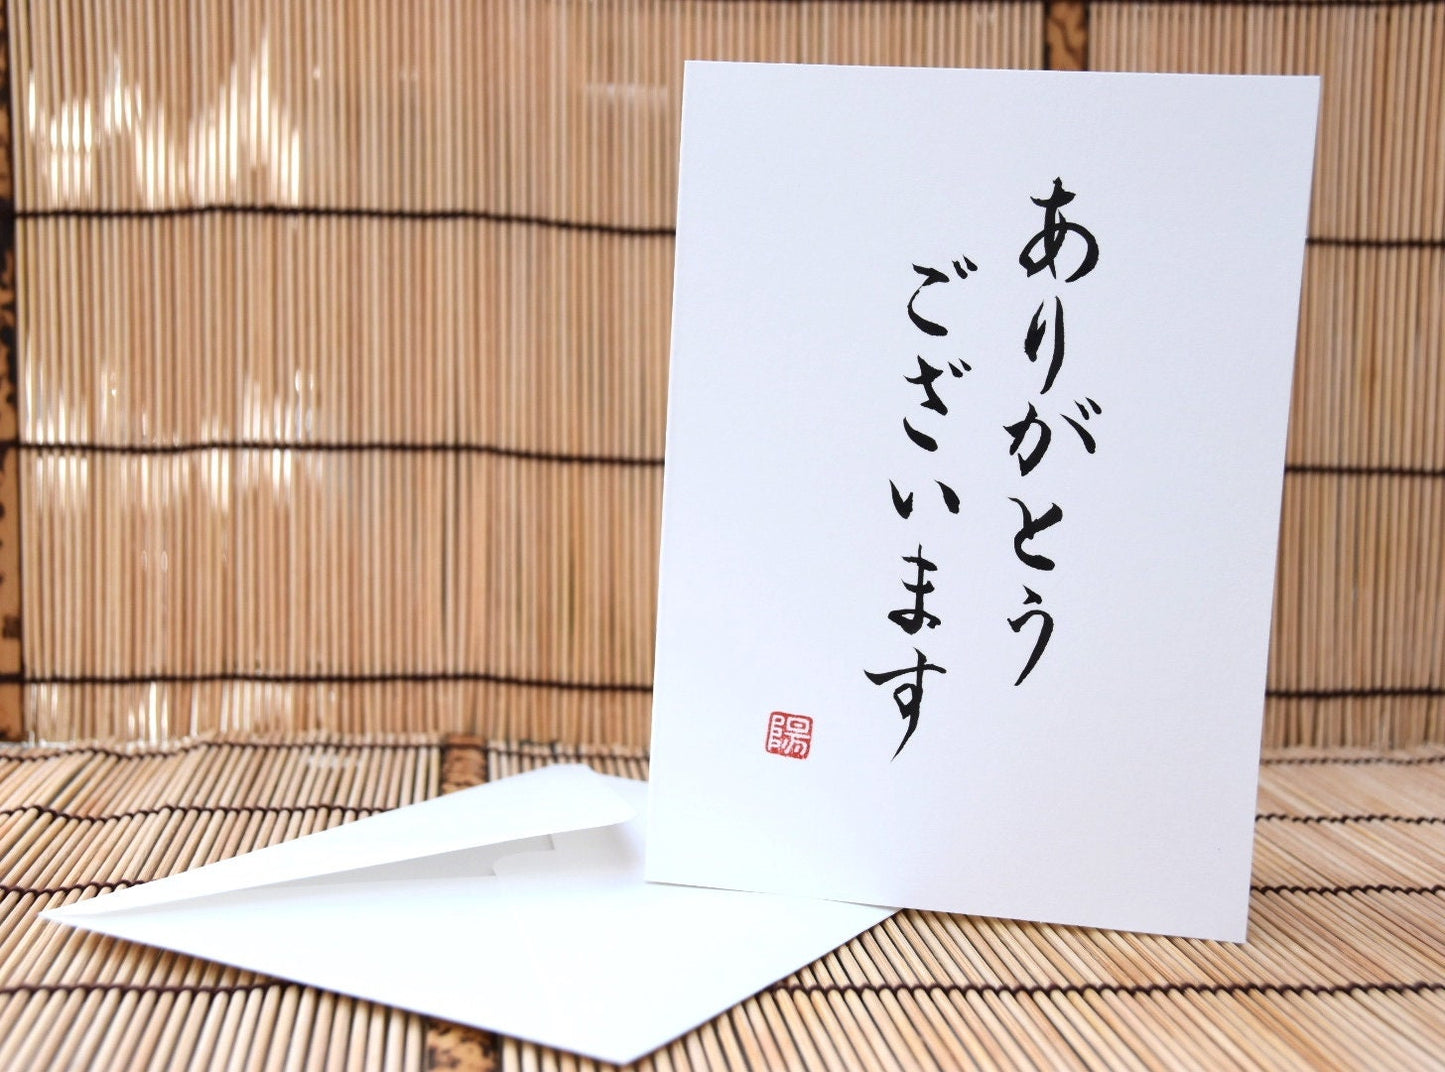 ありがとう
ございます
陽